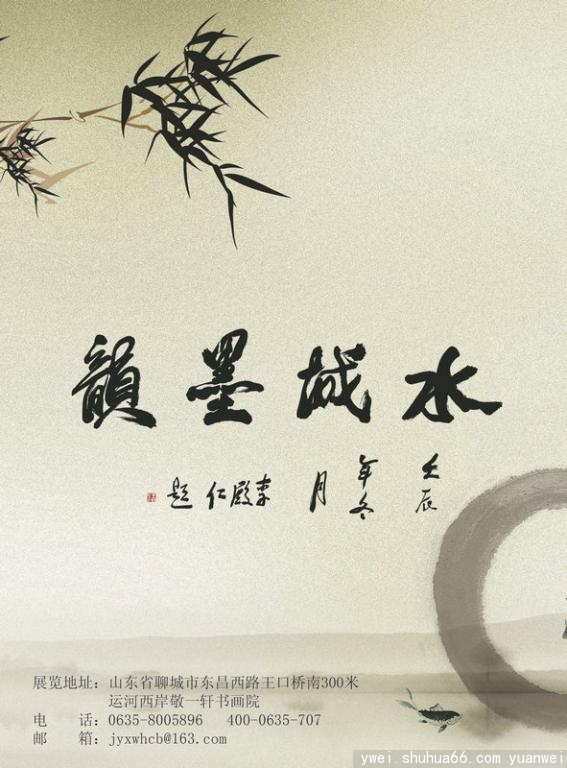 水城墨韻
壬辰年冬月 李殿仁 题
展览地址：山东省聊城市东昌西路王口桥南300米
运河西岸敬一轩书画院
电 话：0635-8005896 400-0635-707
邮 箱：jyxwhcb@163.com
ywei.shuhua66.com yuanwei